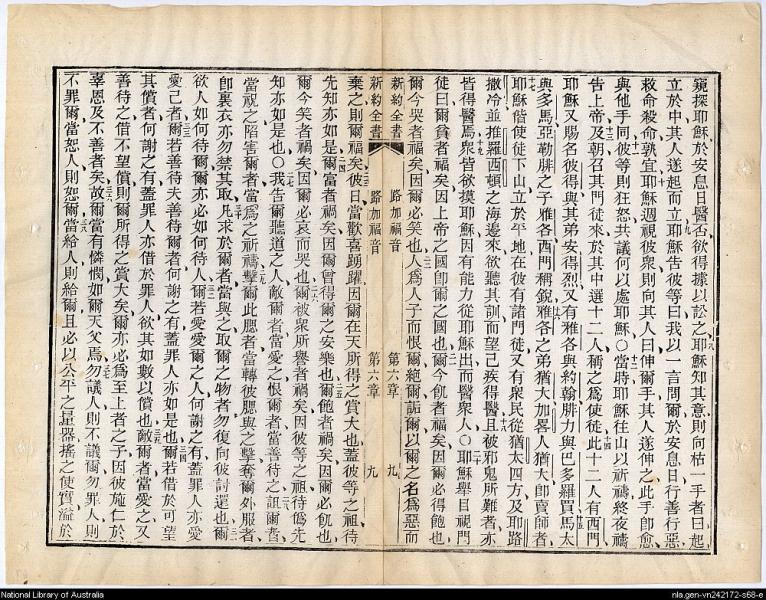 窺探耶穌於安息日醫否欲得據以訟之耶穌知其意則向枯一手者曰起
立於中其人遂起而立耶穌告彼等曰我以一言問爾於安息日行善行惡
救命殺命孰宜耶穌週視彼衆則向其人曰伸爾手其人遂伸之此手即愈
與他手同彼等則狂怒共議何以處耶穌〇當時耶穌往山以祈禱終夜禱
告上帝及朝召其門徒來於其中選十二人稱之爲使徒此十二人有西門
耶穌又賜名彼得與其弟安得烈又有雅各與約翰腓力與巴多羅買馬太
與多馬亞勒腓之子雅各西門稱銳雅各之弟猶大加畧人猶大即賣師者
耶穌偕使徒下山立於平地在彼有諸門徒又有衆民從猶太四方及耶路
撒冷並推羅西頓之海邊來欲聽其訓而望己疾得醫且被邪鬼所難者亦
皆得醫焉衆皆欲摸耶穌因有能力從耶穌出而醫衆人〇耶穌舉目視門
徒曰爾貧者福矣因上帝之國即爾之國也爾今飢者福矣因爾必得飽也
爾今哭者福矣因爾必笑也人爲人子而恨爾絕爾詬爾以爾之名爲惡而
新約全書 路加福音 第六章 九
新約全書 路加福音 第六章 九
棄之則爾福矣彼日當歡喜踴躍因爾在天所得之賞大也蓋彼等之祖待
先知亦如是爾富者禍矣因爾曾得爾之安樂也爾飽者禍矣因爾必飢也
爾今笑者禍矣因爾必哀而哭也爾被衆所譽者禍矣因彼等之祖待僞先
知亦如是也〇我告爾聽道之人敵爾者當愛之恨爾者當善待之詛爾者
當祝之陷害爾者當爲之祈禱擊爾此腮者當轉彼腮與之擊奪爾外服者
即裏衣亦勿禁其取凡求於爾者當與之取爾之物者勿復向彼討還也爾
欲人如何待爾爾亦必如何待人爾若愛愛爾之人何謝之有蓋罪人亦愛
愛己者爾若善待夫善待爾者何謝之有蓋罪人亦如是也爾若借於可望
其償者何謝之有蓋罪人亦借於罪人欲其如數以償也敵爾者當愛之又
善待之借不望償則爾所得之賞大矣爾亦必爲至上者之子因彼施仁於
辜恩及不善者矣故爾當有憐憫如爾天父焉勿議人則不議爾勿罪人則
不罪爾當恕人則恕爾當給人則給爾且必以公平之量器搖之使實溢於
National Library of Australia
nla.gen-vn242172-s68-e